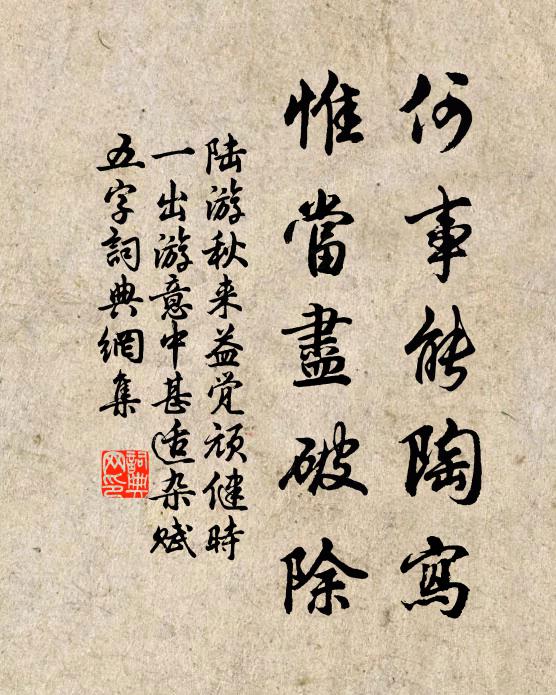 何事能陶寫
惟當盡破除
陆游秋来益觉顽健时
一出游意中甚适杂赋
五字詞典網集
詞典
网印